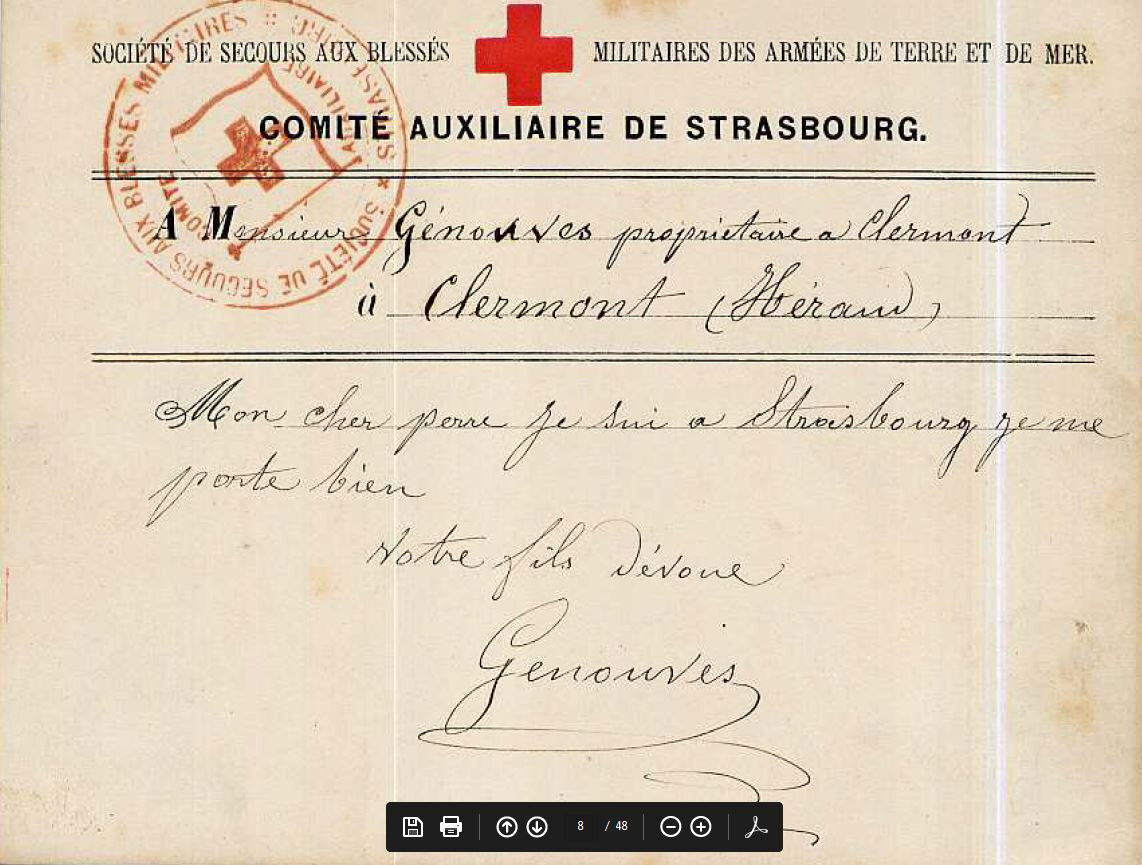 SOCIÉTÉ DE SECOURS AUX BLESSÉS MILITAIRES DES ARMÉES DE TERRE ET DE MER.
COMITÉ AUXILIAIRE DE STRASBOURG.
SOCIÉTÉ DE SECOURS AUX BLESSÉS MILITAIRES
COMITÉ AUXILIAIRE
A Monsieur Génouves proprietaire a Clermont
à Clermont (Héraud)
Mon cher perre je sui a Strasbourg je me
porte bien
Votre fils dévoue
Genouves
8 / 48